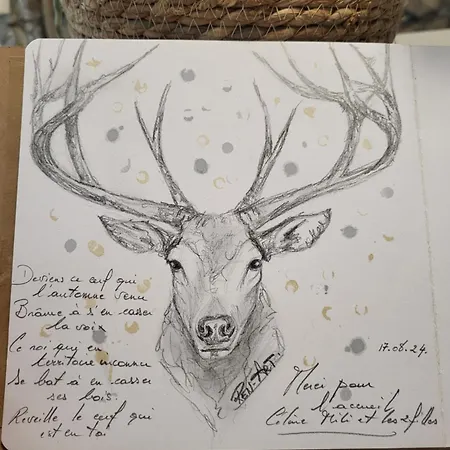 Deviens ce cerf qui
l'automne venu
Brâme à s'en casser
la voix
Ce roi qui en
territoire inconnu
Se bat à en casser
ses bois
Réveille le cerf qui
est en toi
REN-ART
17.08.24.
Merci pour
l'accueil
Céline Mili et les 2 filles